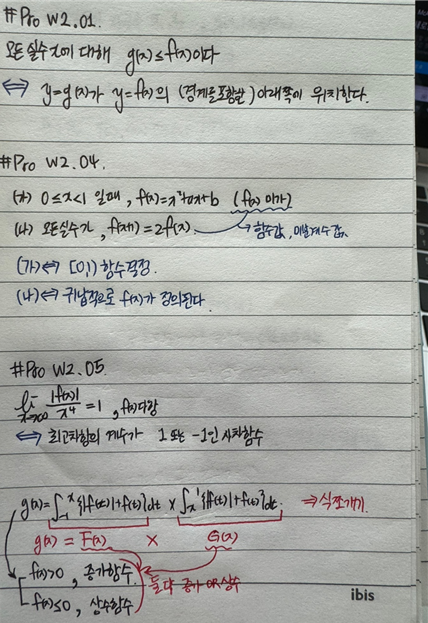 #Pro W2.01.
모든 실수 x에 대해 g(x)≤f(x)이다
⇔ y=g(x)가 y=f(x)의 (경계를 포함한) 아래쪽에 위치한다.
#Pro W2.04.
(가) 0≤x<1 일때, f(x)=x²+ax+b (f(x) 미가)
(나) 모든실수 x, f(x+1)=2f(x). → 함수값, 미분계수 값
(가)⇔ [0,1) 함수 결정.
(나)⇔ 귀납적으로 f(x)가 정의된다.
#Pro W2.05
lim x→∞ |f(x)|/x⁴ = 1, f(x)다항
⇔ 최고차항의 계수가 1 또는 -1인 사차함수
g(x)=∫₋₁ˣ{|f(t)|+f(t)}dt × ∫ₓ¹{|f(t)|+f(t)}dt. ⇒ 식쪼개기.
g(x) = F(x) × G(x)
f(x)>0, 증가함수. 둘다 증가 OR 상수
f(x)≤0, 상수함수
ibis